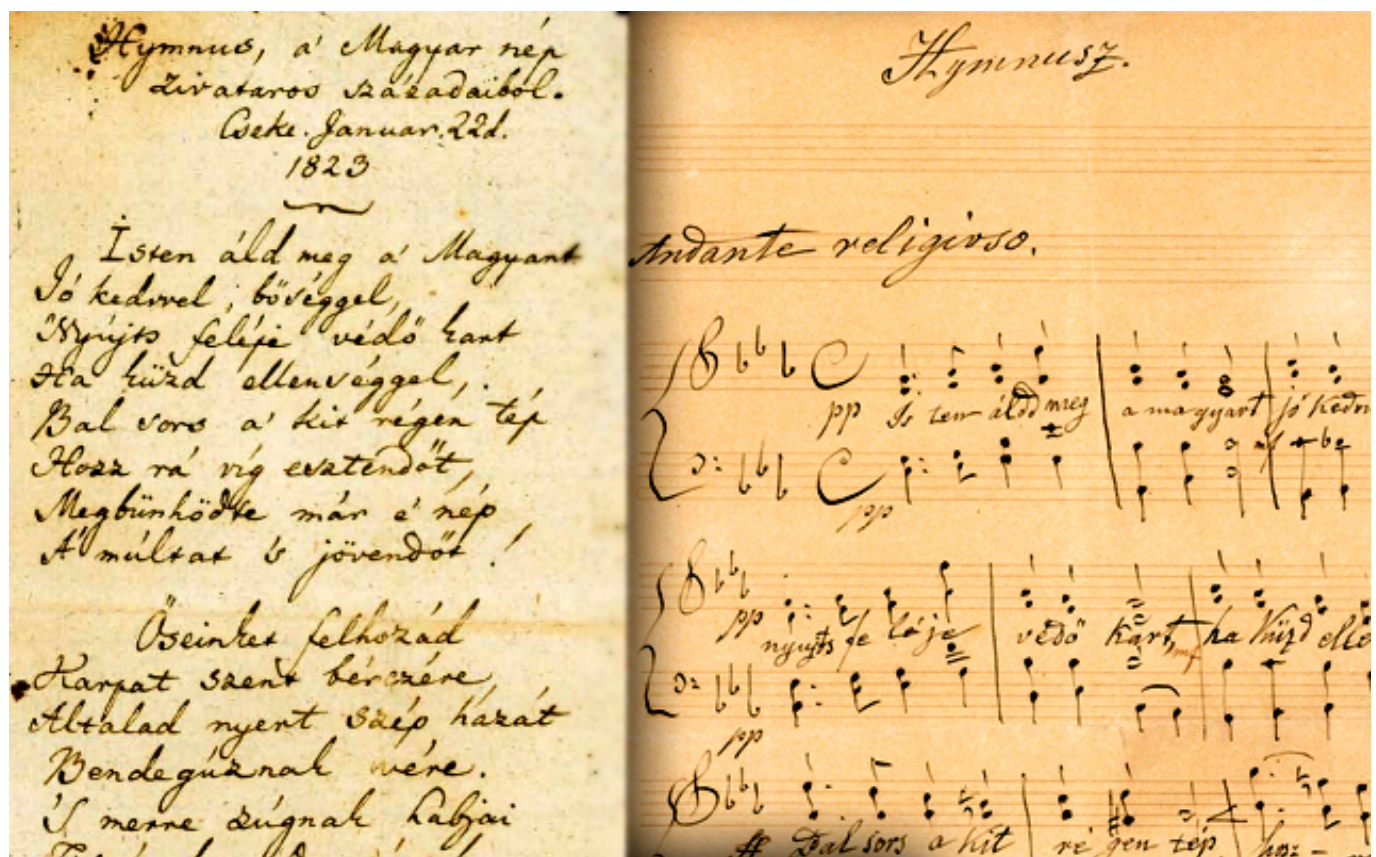 Hymnus, a' Magyar nép
zivataros századaiból.
Cseke. Januar. 22d.
1823
Isten áld meg a' Magyart
Jó kedvvel, bőséggel,
Nyújts feléje védő kart
Ha küzd ellenséggel,
Bal sors a' kit régen tép
Hozz rá víg esztendőt,
Megbünhödte már é nép
A' múltat 's jövendőt!
Őseinket felhozád
Karpat szent bérczére
Altalad nyert szép hazát
Bendegúznak vére.
'S merre zúgnak habjai
Hymnusz.
Andante religioso.
pp Is ten áldd meg a magyart jó kedv
mf
pp
pp nyujts fe léje védő kart, ha küzd elle
mf
pp
ff Bal sors a kit ré gen tép hoz -